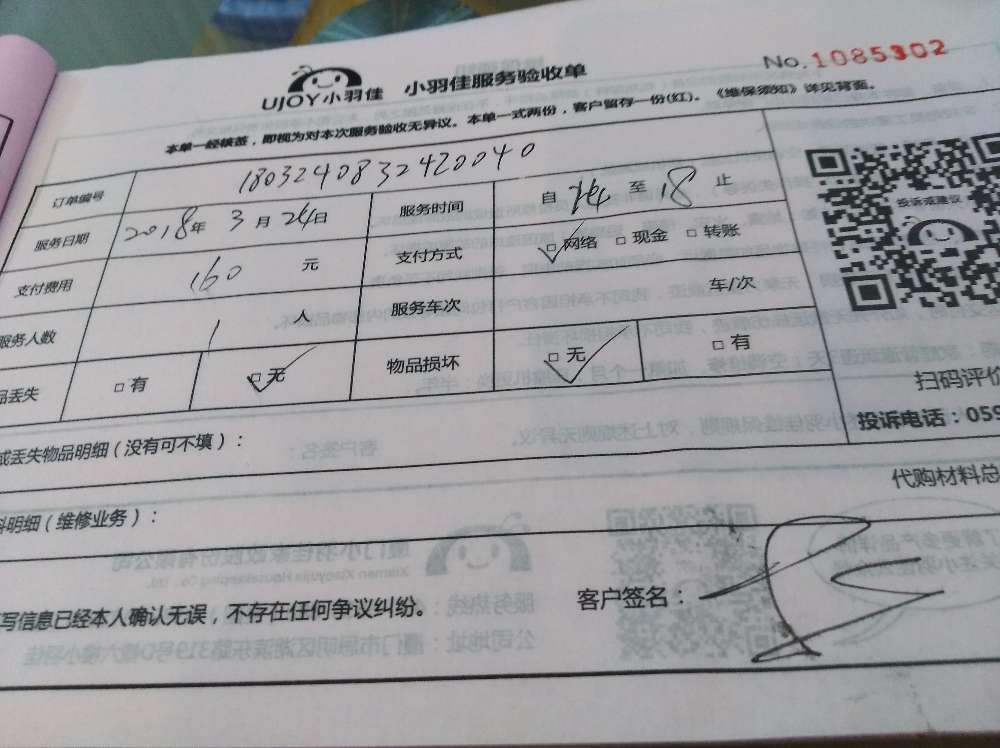 No.1085302
UJOY小羽佳 小羽佳服务验收单
本单一经核签，即视为对本次服务验收无异议。本单一式两份，客户留存一份(红)。《维保须知》详见背面。
订单编号 1803240832420040
服务日期 2018年3月24日 服务时间 自14至18止
支付费用 160元 支付方式 □网络 □现金 □转账
服务人数 1人 服务车次 车/次
品丢失 □有 □无 物品损坏 □无 □有
投诉或建议
扫码评价
投诉电话：059
或丢失物品明细（没有可不填）：
代购材料总
料明细（维修业务）：
写信息已经本人确认无误，不存在任何争议纠纷。 客户签名：